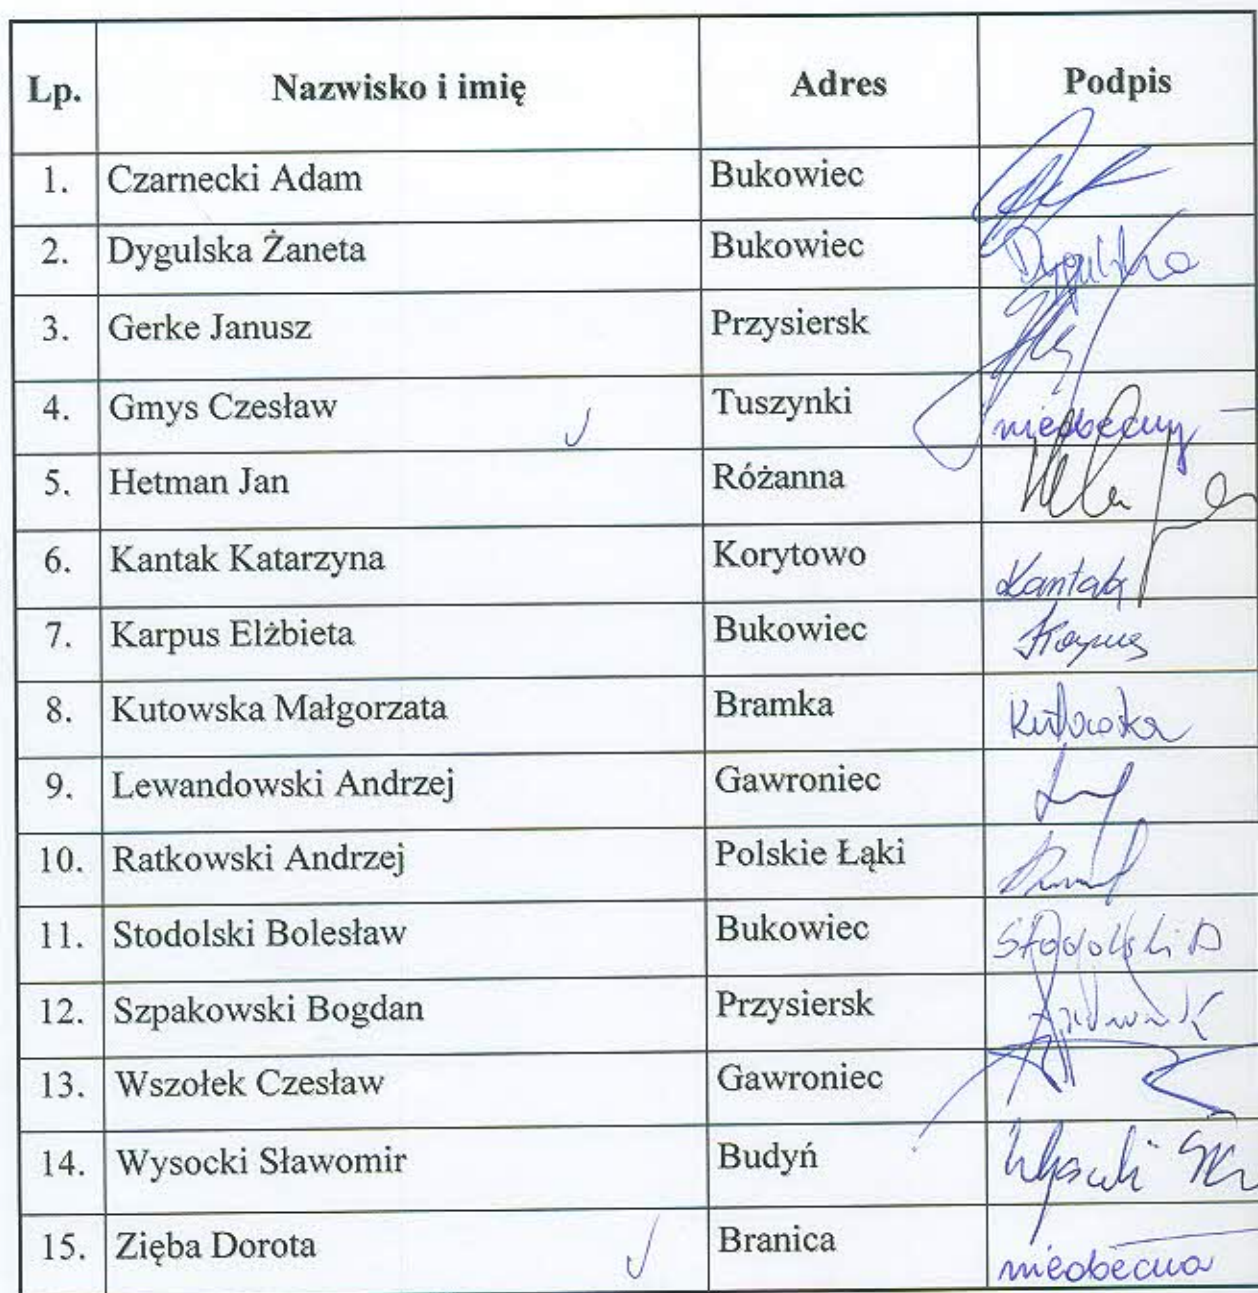 Lp. Nazwisko i imię Adres Podpis
1. Czarnecki Adam Bukowiec
2. Dygulska Żaneta Bukowiec Dygulska
3. Gerke Janusz Przysiersk
4. Gmys Czesław Tuszynki nieobecny
5. Hetman Jan Różanna
6. Kantak Katarzyna Korytowo Kantak
7. Karpus Elżbieta Bukowiec Karpus
8. Kutowska Małgorzata Bramka Kutowska
9. Lewandowski Andrzej Gawroniec
10. Ratkowski Andrzej Polskie Łąki
11. Stodolski Bolesław Bukowiec Stodolski B
12. Szpakowski Bogdan Przysiersk
13. Wszołek Czesław Gawroniec
14. Wysocki Sławomir Budyń Wysocki
15. Zięba Dorota Branica nieobecna